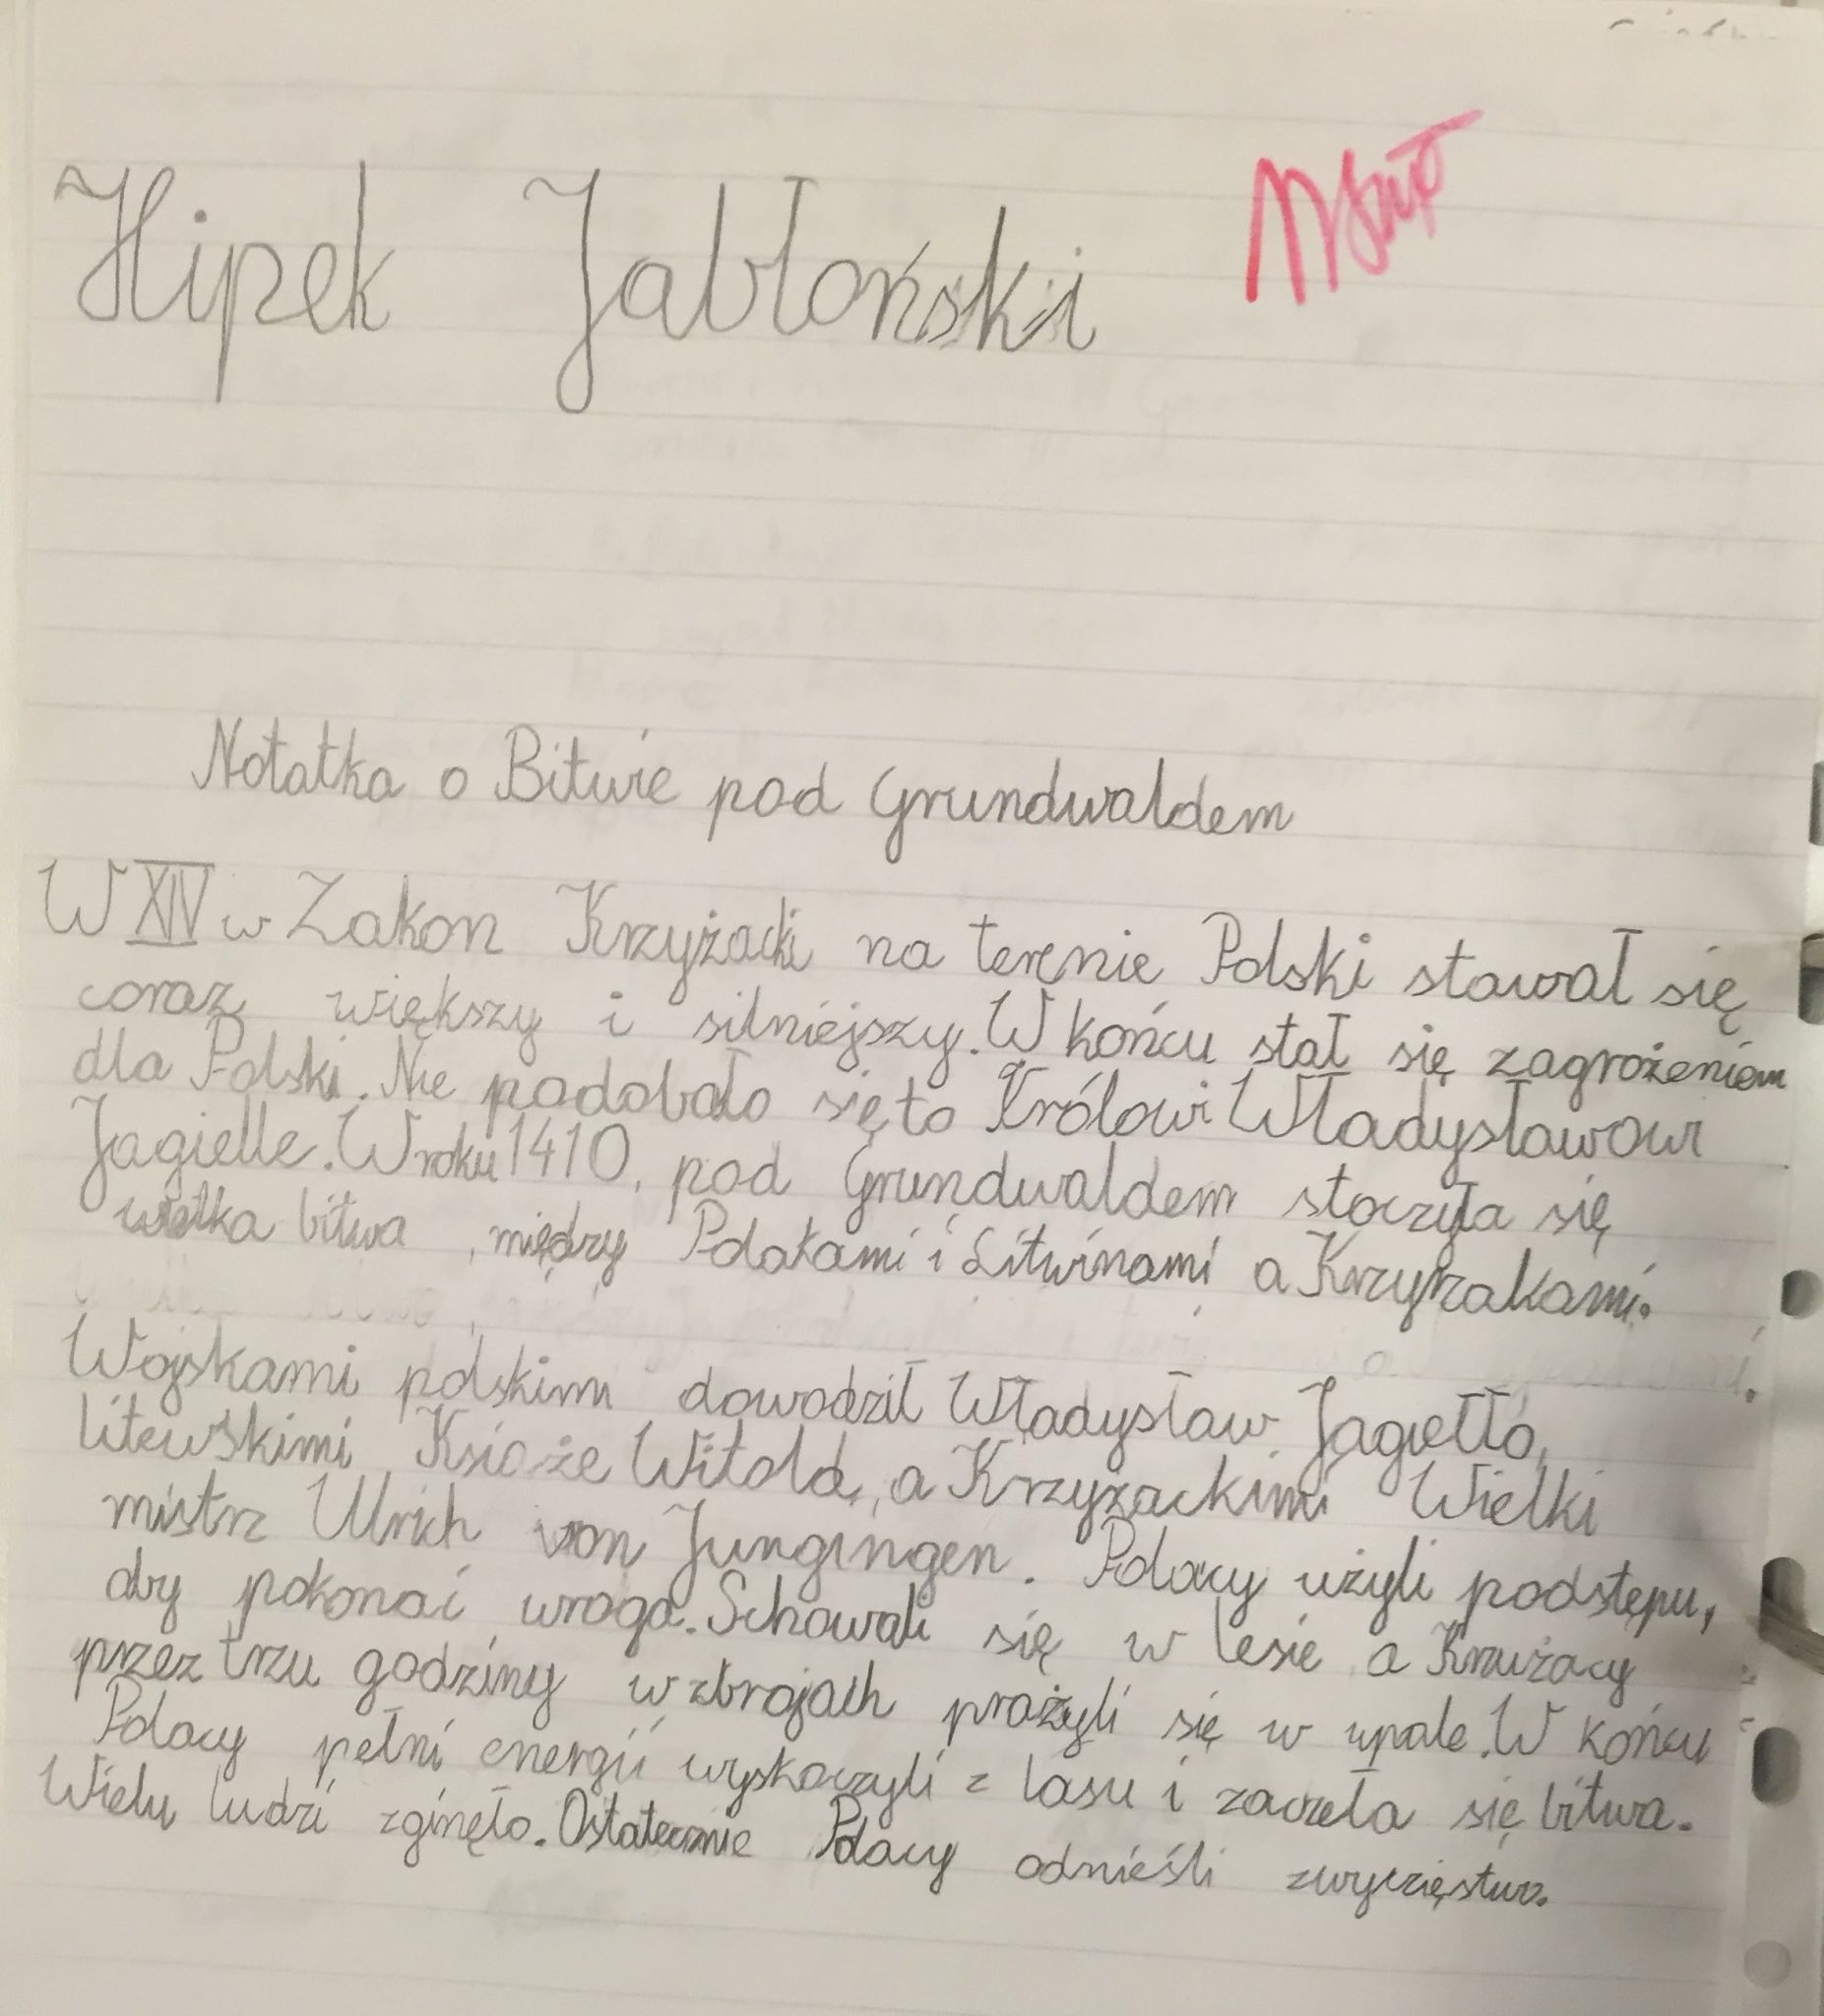 Hipek Jabłoński
Notatka o Bitwie pod Grundwaldem
W XIV w Zakon Krzyżacki na terenie Polski stawał się
coraz większy i silniejszy. W końcu stał się zagrożeniem
dla Polski. Nie podobało się to Królowi Władysławowi
Jagielle. W roku 1410, pod Grundwaldem stoczyła się
wielka bitwa, między Polakami i Litwinami a Krzyżakami.
Wojskami polskimi dowodził Władysław Jagiełło,
litewskimi Książe Witold, a Krzyżackimi Wielki
mistrz Ulrich von Jungingen. Polacy użyli podstępu,
aby pokonać wroga. Schowali się w lesie a Krzużacy
przez trzu godziny w zbrojach prażyli się w upale. W końcu
Polacy pełni energii wyskoczyli z lasu i zaczeła się bitwa.
Wielu ludzi zginęło. Ostatecznie Polacy odnieśli zwycięstwo.